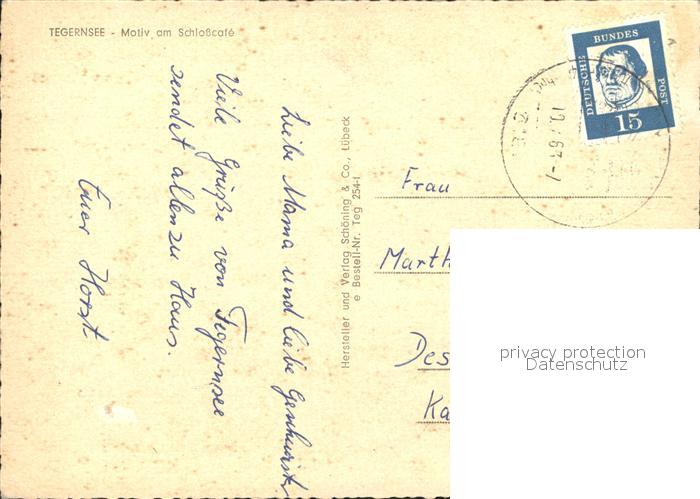 TEGERNSEE - Motiv am Schloßcafé
Liebe Mama und liebe Geschwister
Viele Grüße von Tegernsee
sendet allen zu Haus.
Euer Horst
Hersteller und Verlag Schöning & Co., Lübeck
e Bestell-Nr. Teg 254-I
DEUTSCHE BUNDES POST
15
Frau
Marth
Des
Ka
privacy protection
Datenschutz